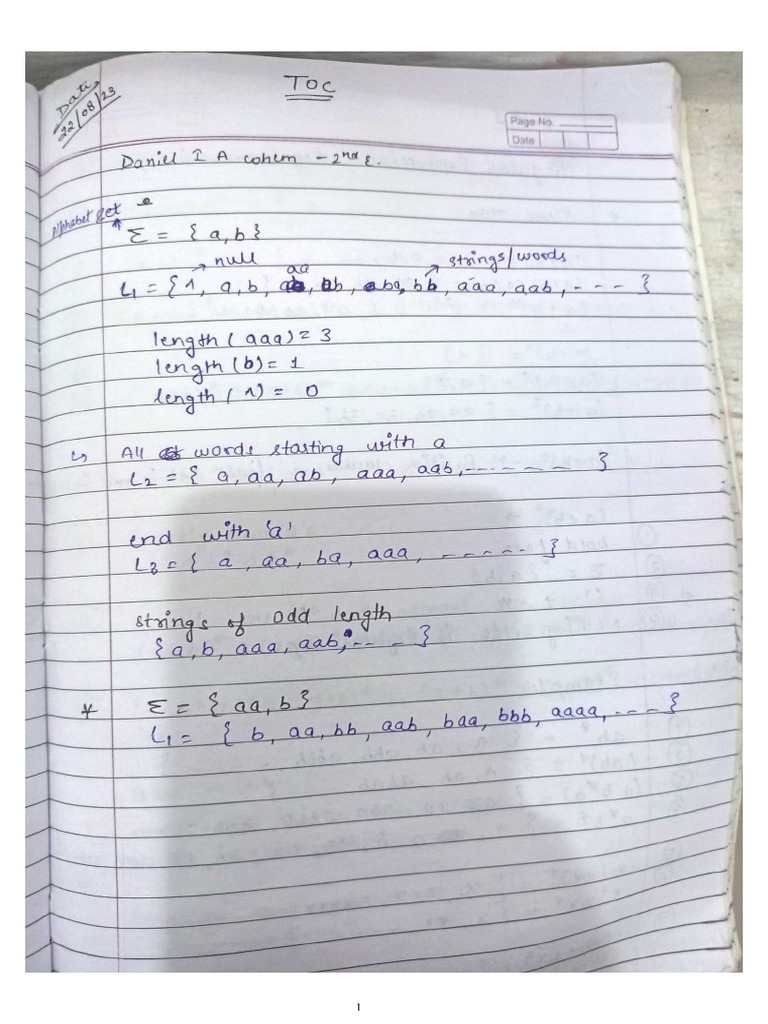 TOC
Date
22/08/23
Page No.
Date
Daniel I A cohem - 2nd E.
Alphabet set
Σ = { a, b }
null
aa
strings/words
L1 = { Λ, a, b, ab, ba, bb, aaa, aab, --- }
length ( aaa) = 3
length (b) = 1
length ( Λ) = 0
↳ All words starting with a
L2 = { a, aa, ab, aaa, aab, ------ }
end with 'a'
L3 = { a, aa, ba, aaa, ------ }
strings of odd length
{ a, b, aaa, aab, --- }
* Σ = { aa, b }
L1 = { b, aa, bb, aab, baa, bbb, aaaa, --- }
1